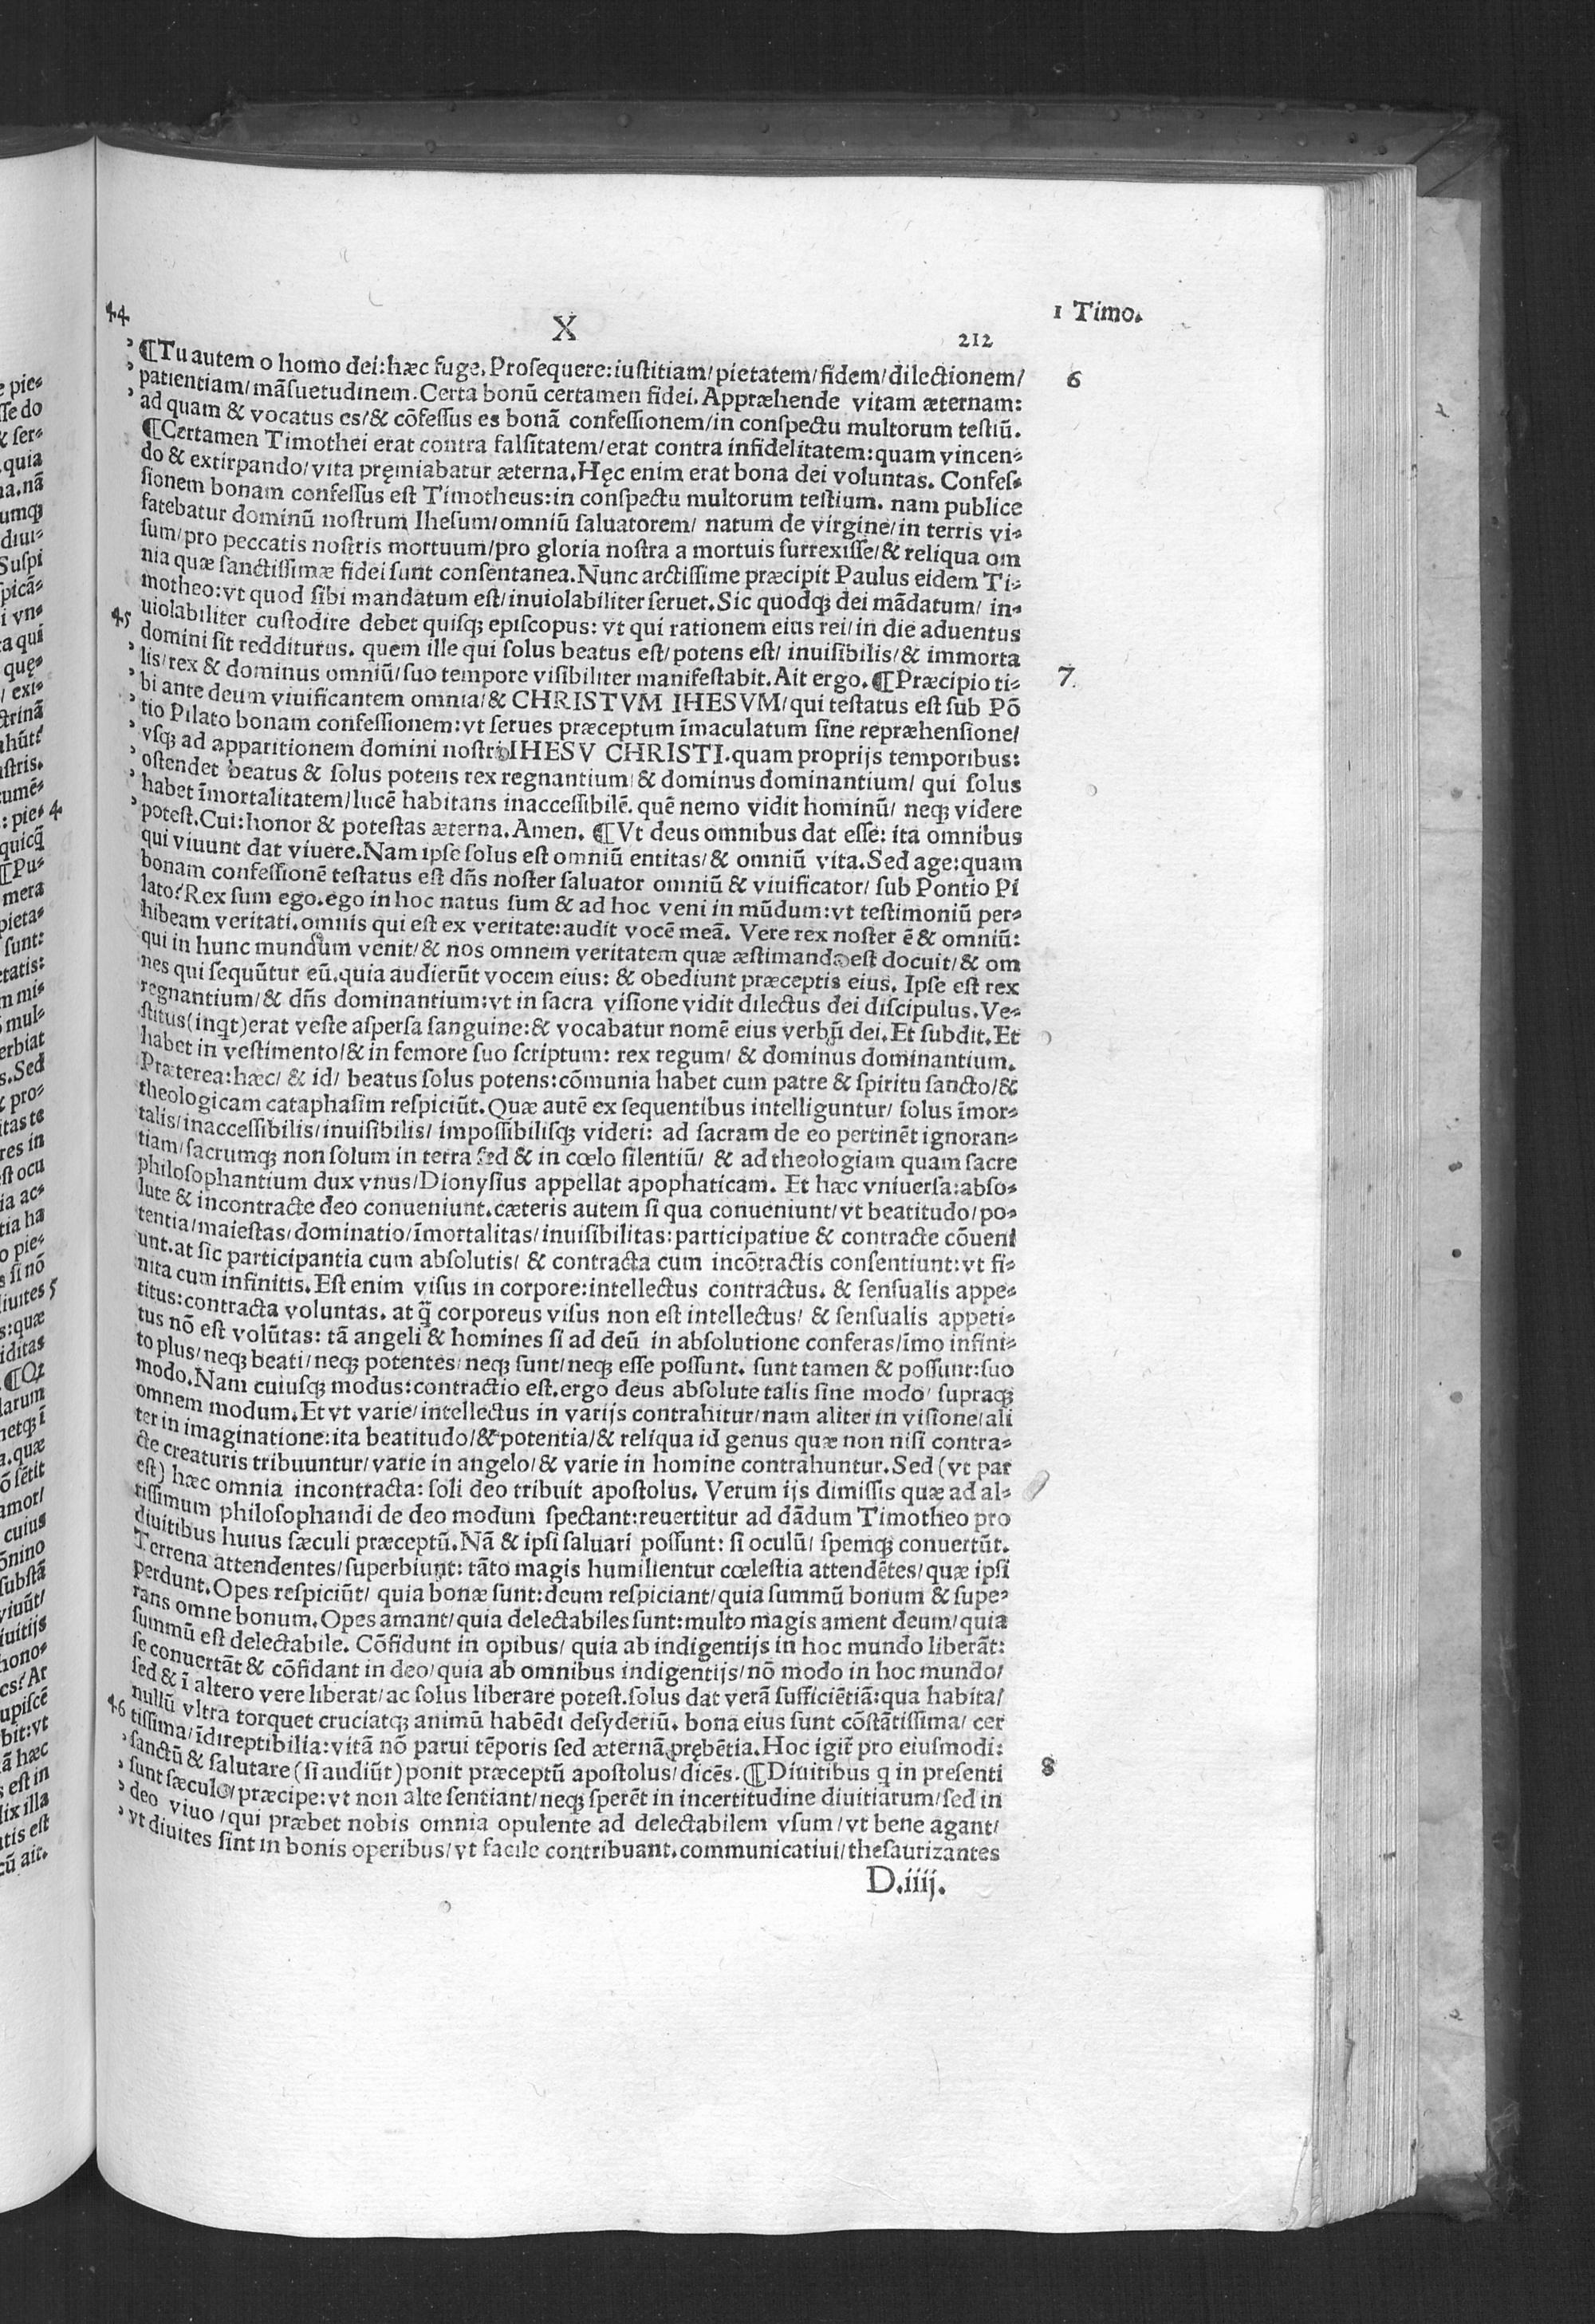 44
X
212
1 Timo.
¶Tu autem o homo dei:hæc fuge. Prosequere:iustitiam/pietatem/fidem/dilectionem/
6
patientiam/mãsuetudinem. Certa bonũ certamen fidei. Appræhende vitam æternam:
ad quam & vocatus es/& cõfessus es bonã confessionem/in conspectu multorum testiũ.
¶Certamen Timothei erat contra falsitatem/erat contra infidelitatem:quam vincen-
do & extirpando/vita pręmiabatur æterna. Hęc enim erat bona dei voluntas. Confes-
sionem bonam confessus est Timotheus:in conspectu multorum testium. nam publice
fatebatur dominũ nostrum Ihesum/omniũ saluatorem/ natum de virgine/in terris vi-
sum/pro peccatis nostris mortuum/pro gloria nostra a mortuis surrexisse/& reliqua om
nia quæ sanctissimæ fidei sunt consentanea. Nunc arctissime præcipit Paulus eidem Ti-
motheo:vt quod sibi mandatum est/inuiolabiliter seruet. Sic quodqꝫ dei mãdatum/ in-
45
uiolabiliter custodire debet quisqꝫ episcopus: vt qui rationem eius rei/in die aduentus
domini sit redditurus. quem ille qui solus beatus est/potens est/ inuisibilis/& immorta
lis/rex & dominus omniũ/suo tempore visibiliter manifestabit. Ait ergo. ¶Præcipio ti-
7.
bi ante deum viuificantem omnia/& CHRISTVM IHESVM/qui testatus est sub Põ
tio Pilato bonam confessionem:vt serues præceptum ĩmaculatum sine repræhensione/
vsqꝫ ad apparitionem domini nostri IHESV CHRISTI.quam proprijs temporibus:
ostendet beatus & solus potens rex regnantium/& dominus dominantium/ qui solus
habet ĩmortalitatem/lucẽ habitans inaccessibilẽ. quẽ nemo vidit hominũ/ neqꝫ videre
potest. Cui:honor & potestas æterna. Amen. ¶Vt deus omnibus dat esse: ita omnibus
qui viuunt dat viuere. Nam ipse solus est omniũ entitas/& omniũ vita. Sed age:quam
bonam confessionẽ testatus est dñs noster saluator omniũ & viuificator/ sub Pontio Pi
lato? Rex sum ego.ego in hoc natus sum & ad hoc veni in mũdum:vt testimoniũ per-
hibeam veritati.omnis qui est ex veritate:audit vocẽ meã. Vere rex noster ẽ & omniũ:
qui in hunc mundum venit/& nos omnem veritatem quæ æstimanda est docuit/& om
nes qui sequũtur eũ.quia audierũt vocem eius: & obediunt præceptis eius. Ipse est rex
regnantium/& dñs dominantium:vt in sacra visione vidit dilectus dei discipulus. Ve-
stitus(inqt)erat veste aspersa sanguine:& vocabatur nomẽ eius verbũ dei. Et subdit. Et
habet in vestimento/& in femore suo scriptum: rex regum/ & dominus dominantium.
Præterea:hæc/ & id/ beatus solus potens:cõmunia habet cum patre & spiritu sancto/&
theologicam cataphasim respiciũt. Quæ autẽ ex sequentibus intelliguntur/ solus ĩmor-
talis/inaccessibilis/inuisibilis/ impossibilisqꝫ videri: ad sacram de eo pertinẽt ignoran-
tiam/sacrumqꝫ non solum in terra sed & in cœlo silentiũ/ & ad theologiam quam sacre
philosophantium dux vnus/Dionysius appellat apophaticam. Et hæc vniuersa:abso-
lute & incontracte deo conueniunt.cæteris autem si qua conueniunt/vt beatitudo/po-
tentia/maiestas/dominatio/ĩmortalitas/inuisibilitas:participatiue & contracte cõueni
unt.at sic participantia cum absolutis/ & contracta cum incõtractis consentiunt:vt fi-
nita cum infinitis. Est enim visus in corpore:intellectus contractus. & sensualis appe-
titus:contracta voluntas. at q̃ corporeus visus non est intellectus/ & sensualis appeti-
tus nõ est volũtas: tã angeli & homines si ad deũ in absolutione conferas/ĩmo infini-
to plus/neqꝫ beati/neqꝫ potentes/neqꝫ sunt/neqꝫ esse possunt. sunt tamen & possunt:suo
modo. Nam cuiusqꝫ modus:contractio est.ergo deus absolute talis sine modo/ supraqꝫ
omnem modum. Et vt varie/intellectus in varijs contrahitur/nam aliter in visione/ali
ter in imaginatione:ita beatitudo/& potentia/& reliqua id genus quæ non nisi contra-
cte creaturis tribuuntur/varie in angelo/& varie in homine contrahuntur. Sed (vt par
est) hæc omnia incontracta: soli deo tribuit apostolus. Verum ijs dimissis quæ ad al-
tissimum philosophandi de deo modum spectant:reuertitur ad dãdum Timotheo pro
diuitibus huius sæculi præceptũ. Nã & ipsi saluari possunt: si oculũ/ spemqꝫ conuertũt.
Terrena attendentes/superbiunt: tãto magis humilientur cœlestia attendẽtes/quæ ipsi
perdunt. Opes respiciũt/ quia bonæ sunt:deum respiciant/quia summũ bonum & supe-
rans omne bonum. Opes amant/quia delectabiles sunt:multo magis ament deum/quia
summũ est delectabile. Cõfidunt in opibus/ quia ab indigentijs in hoc mundo liberãt:
se conuertãt & cõfidant in deo/quia ab omnibus indigentijs/nõ modo in hoc mundo/
sed & ĩ altero vere liberat/ac solus liberare potest.solus dat verã sufficiẽtiã:qua habita/
46
nullũ vltra torquet cruciatqꝫ animũ habẽdi desyderiũ. bona eius sunt cõstãtissima/ cer
tissima/ĩdireptibilia:vitã nõ parui tẽporis sed æternã prębẽtia. Hoc igit̃ pro eiusmodi:
sanctũ & salutare (si audiũt)ponit præceptũ apostolus/dicẽs. ¶Diuitibus q in presenti
8
sunt sæculo/præcipe:vt non alte sentiant/neqꝫ sperẽt in incertitudine diuitiarum/sed in
deo viuo/qui præbet nobis omnia opulente ad delectabilem vsum/vt bene agant/
vt diuites sint in bonis operibus/vt facile contribuant.communicatiui/thesaurizantes
D.iiij.